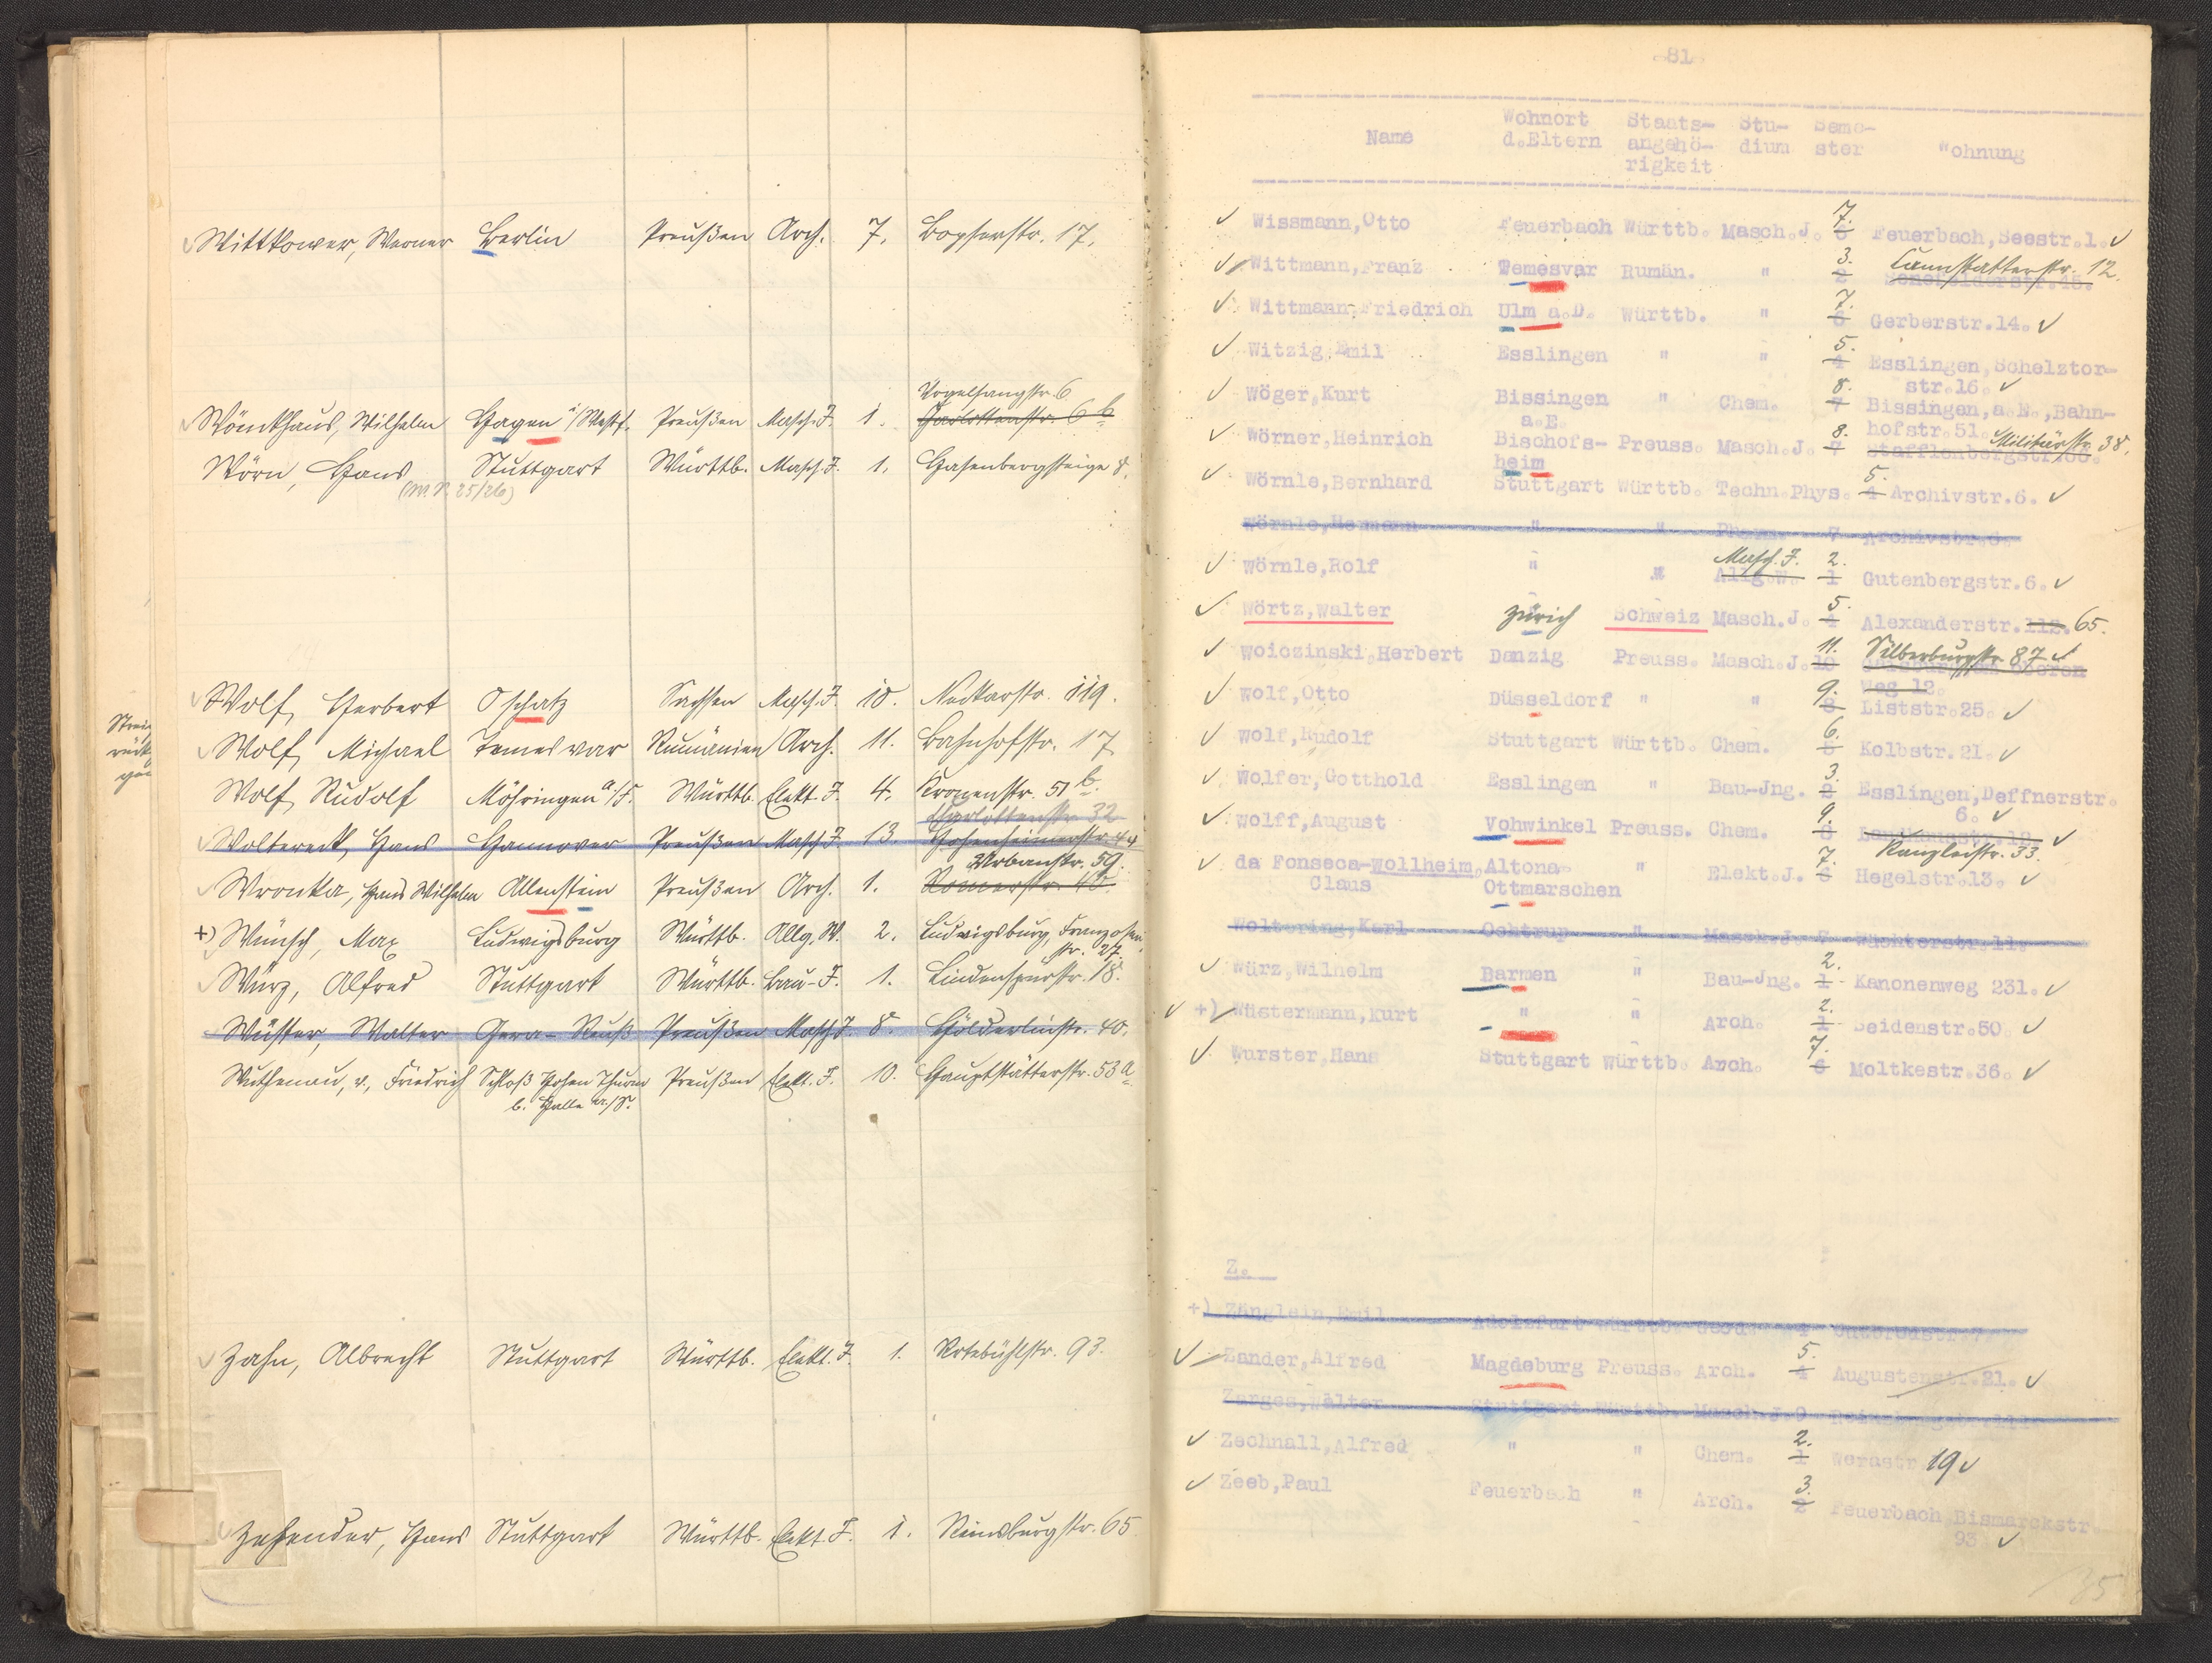 Wittkower, Werner Berlin Preußen Arch. 7. Bopserstr. 17.
Vogelsangstr. 6
Wönkhaus, Wilhelm Hagen i/Westf. Preußen Masch. J. 1. Charlottenstr. 6 b
Wörn, Hans Stuttgart Württb. Masch. J. 1. Hasenbergsteige 8.
(W.S. 25/26)
Wolf, Herbert Oschatz Sachsen Masch. J. 10. Neckarstr. 119.
Wolf, Michael Temesvar Rumänien Arch. 11. Bahnhofstr. 17
Wolf, Rudolf Möhringen a/F. Württb. Elekt. J. 4. Kronenstr. 51 b.
Charlottenstr. 32
Woltereck, Hans Hannover Preußen Masch. J. 13. Hohenheimerstr. 44
Urbanstr. 59.
Wronka, Hans Wilhelm Allenstein Preußen Arch. 1. Römerstr. 40.
+) Wünsch, Max Ludwigsburg Württb. Allg. W. 2. Ludwigsburg, Franzosen-
str. 27.
Würz, Alfred Stuttgart Württb. Bau-J. 1. Lindenspürstr. 18.
Wüster, Walter Gera-Reuß Preußen Masch. J. 8. Hölderlinstr. 40.
Wuthenau, v., Friedrich Schloß Hohen Thurm Preußen Elekt. J. 10. Hauptstätterstr. 53 a
b. Halle a./S.
Zahn, Albrecht Stuttgart Württb. Elekt. J. 1. Rotebühlstr. 93.
Zehender, Hans Stuttgart Württb. Elekt. J. 1. Reinsburgstr. 65
81
Name Wohnort Staats- Stu- Seme- Wohnung
d.Eltern angehö- dium ster
rigkeit
7.
Wissmann,Otto Feuerbach Württb. Masch.J. 6 Feuerbach,Seestr.1.
3. Cannstatterstr. 12.
Wittmann,Franz Temesvar Rumän. " 2 Senefelderstr.45.
7.
Wittmann,Friedrich Ulm a.D. Württb. " 6 Gerberstr.14.
5.
Witzig,Emil Esslingen " " 4 Esslingen,Schelztor-
str.16.
8.
Wöger,Kurt Bissingen " Chem. 7 Bissingen,a.E.,Bahn-
a.E. hofstr.51.
8. Militärstr. 38.
Wörner,Heinrich Bischofs- Preuss. Masch.J. 7 Stafflenbergstr.66.
heim
5.
Wörnle,Bernhard Stuttgart Württb. Techn.Phys. 4 Archivstr.6.
Wörnle,Hermann " " 7
Masch. J. 2.
Wörnle,Rolf " " Allg.W. 1 Gutenbergstr.6.
5.
Wörtz,Walter Zürich Schweiz Masch.J. 4 Alexanderstr.112. 65.
11. Silberburgstr. 87
Woiczinski,Herbert Danzig Preuss. Masch.J. 10 oberen
Weg 12.
9.
Wolf,Otto Düsseldorf " " 8 Liststr.25.
6.
Wolf,Rudolf Stuttgart Württb. Chem. 5 Kolbstr.21.
3.
Wolfer,Gotthold Esslingen " Bau-Jng. 2 Esslingen,Deffnerstr.
6.
9.
Wolff,August Vohwinkel Preuss. Chem. 8 Landhausstr.12.
7. Kanzleistr. 33.
da Fonseca-Wollheim,Altona- " Elekt.J. 6 Hegelstr.13.
Claus Ottmarschen
Woltering,Karl Ochtrup " Masch.J. 7 Wächterstr.11.
2.
Würz,Wilhelm Barmen " Bau-Jng. 1 Kanonenweg 231.
2.
+) Wüstermann,Kurt " " Arch. 1 Seidenstr.50.
7.
Wurster,Hans Stuttgart Württb. Arch. 6 Moltkestr.36.
Z.
+) Zänglein,Emil Adolzfurt Württb.
5.
Zander,Alfred Magdeburg Preuss. Arch. 4 Augustenstr.21.
Zarges,Walter Stuttgart Württb. Masch.J.9
2.
Zechnall,Alfred " " Chem. 1 Werastr 19
3.
Zeeb,Paul Feuerbach " Arch. 2 Feuerbach,Bismarckstr
93